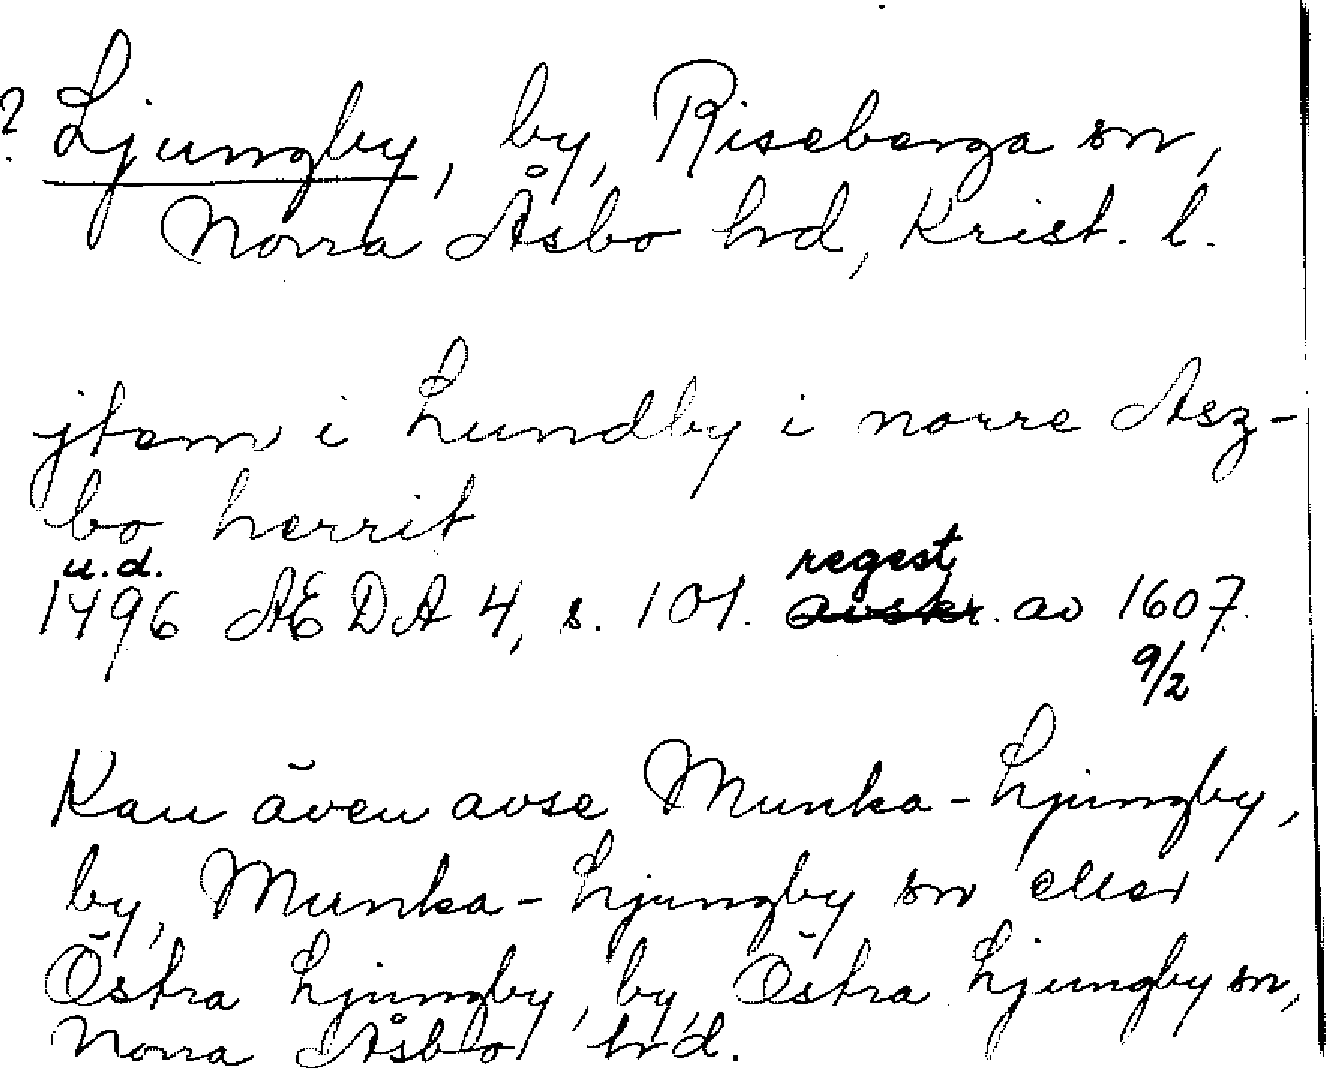 ? Ljungby, by, Riseberga sn,
Norra Åsbo hd, Krist. l.
jtem i Lundby i norre Asz-
bo herrit
u.d. regest
1496 AEDA 4, s. 101. avskr. av 1607.
9/2
Kan även avse Munka-Ljungby,
by, Munka-Ljungby sn eller
Östra Ljungby, by, Östra Ljungby sn,
Norra Åsbo hd.